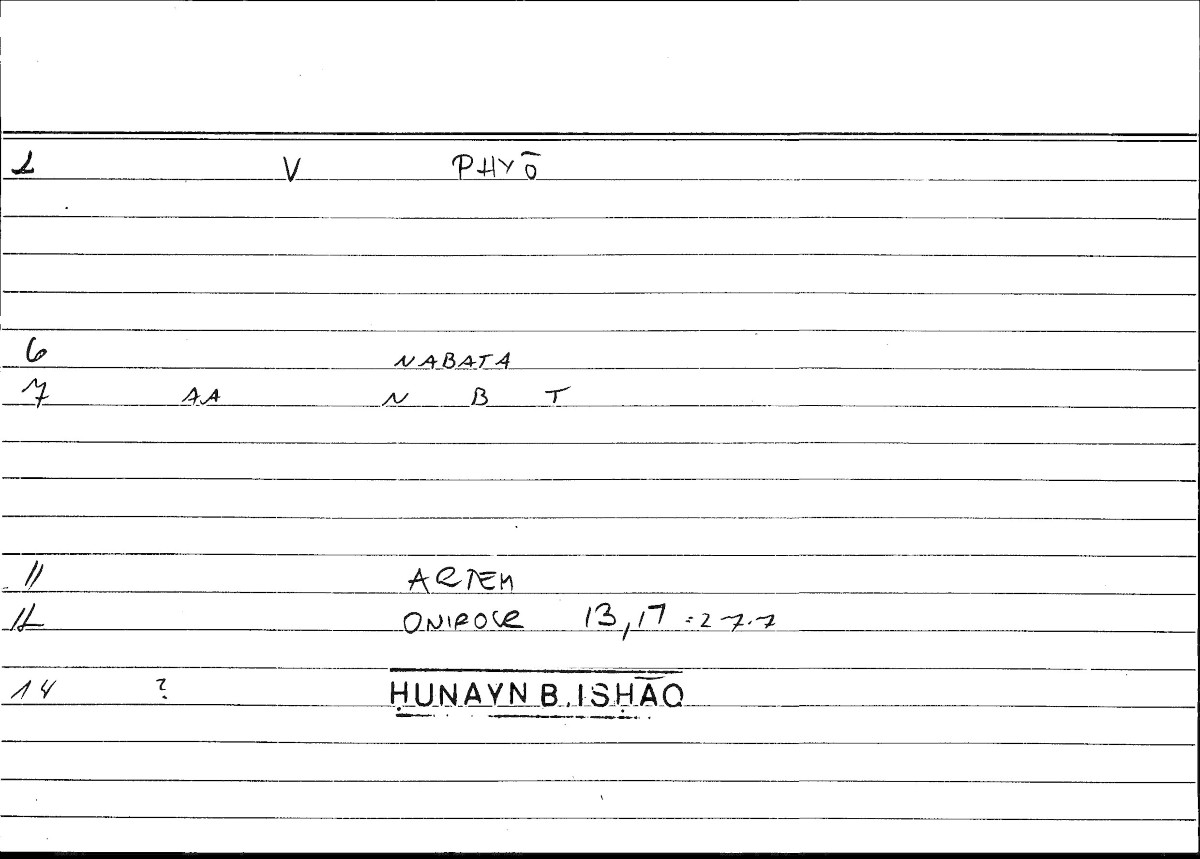 1 V PHYŌ
6 NABATA
7 AA N B T
11 ARTEM
12 ONIROCR 13,17 = 2 7.7
14 ? ḤUNAYN B. ISḤĀQ